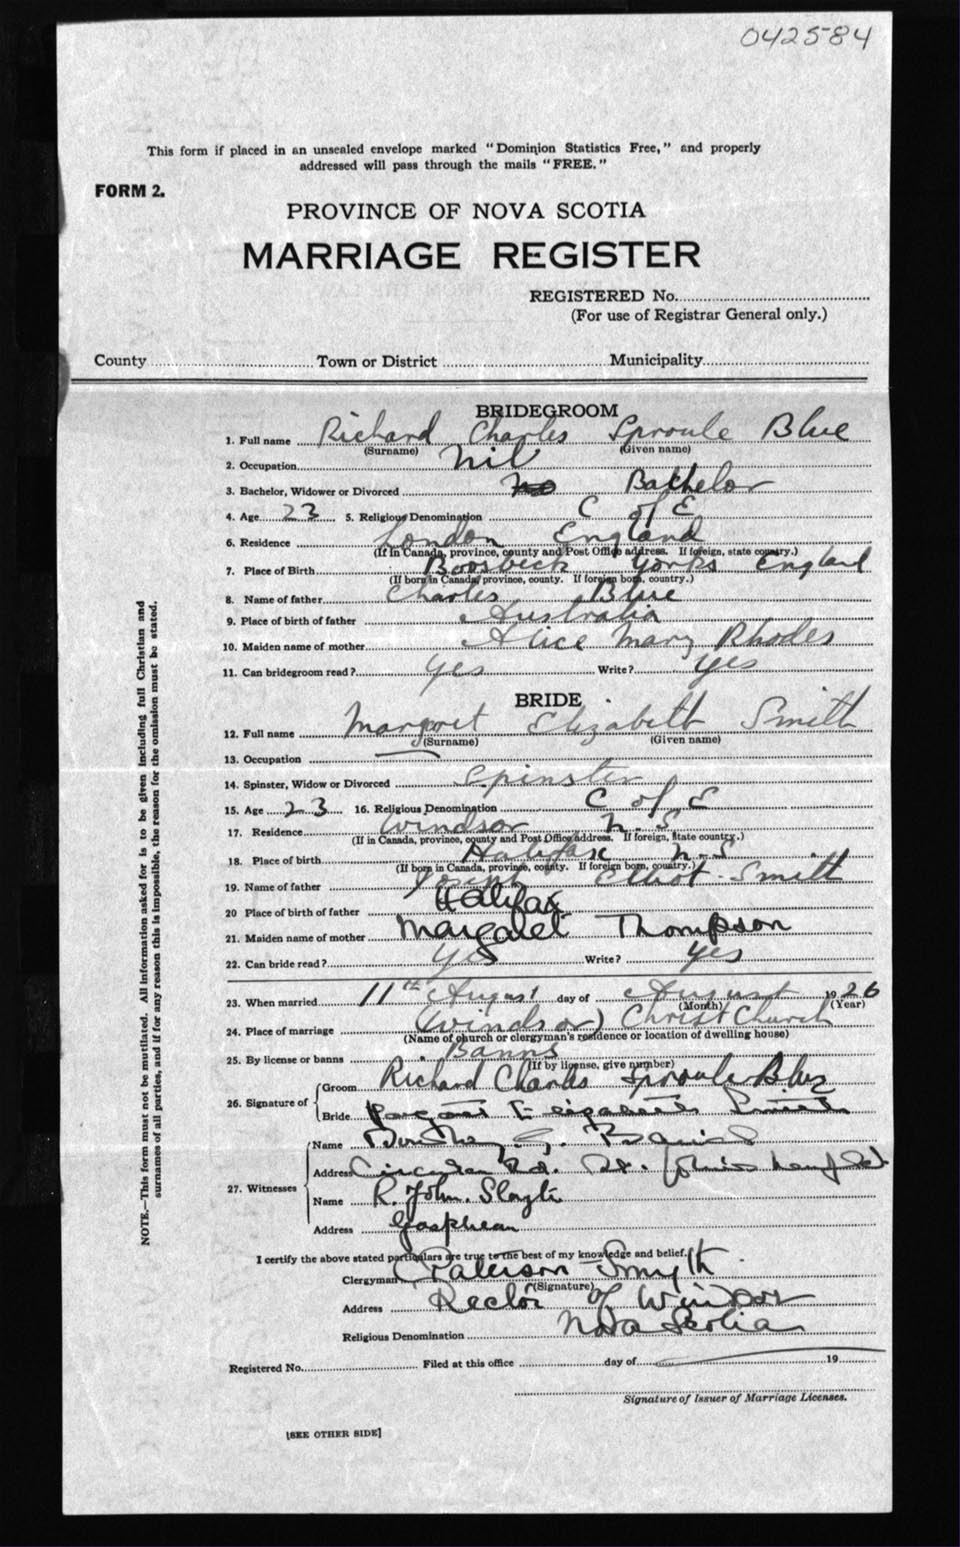 042584
This form if placed in an unsealed envelope marked "Dominion Statistics Free," and properly
addressed will pass through the mails "FREE."
FORM 2.
PROVINCE OF NOVA SCOTIA
MARRIAGE REGISTER
REGISTERED No.
(For use of Registrar General only.)
County Town or District Municipality
BRIDEGROOM
1. Full name Richard Charles Sproule Blue
(Surname) (Given name)
2. Occupation Nil
3. Bachelor, Widower or Divorced Bachelor
4. Age 23 5. Religious Denomination C of E
6. Residence London England
(If in Canada, province, county and Post Office address. If foreign, state country.)
7. Place of Birth Boosbeck Yorks England
(If born in Canada, province, county. If foreign born, country.)
8. Name of father Charles Blue
9. Place of birth of father Australia
10. Maiden name of mother Alice Mary Rhodes
11. Can bridegroom read? yes Write? yes
BRIDE
12. Full name Margaret Elizabeth Smith
(Surname) (Given name)
13. Occupation
14. Spinster, Widow or Divorced Spinster
15. Age 23 16. Religious Denomination C of E
17. Residence Windsor N.S.
(If in Canada, province, county and Post Office address. If foreign, state country.)
18. Place of birth Halifax N-S
(If born in Canada, province, county. If foreign born, country.)
19. Name of father Joseph Elliot Smith
20 Place of birth of father Halifax
21. Maiden name of mother Margaret Thompson
22. Can bride read? yes Write? yes
23. When married 11th August day of August 1926
(Month) (Year)
24. Place of marriage (Windsor) Christ Church
(Name of church or clergyman's residence or location of dwelling house)
25. By license or banns Banns
(If by license, give number)
26. Signature of Groom Richard Charles Sproule Blue
Bride Margaret Elizabeth Smith
27. Witnesses
Name Dorothy
Address Rd. St. John's
Name R. John
Address
I certify the above stated particulars are true to the best of my knowledge and belief.
Clergyman Paterson Smyth
(Signature)
Address Rector of Windsor
Religious Denomination Nova Scotia
Registered No. Filed at this office day of 19
Signature of Issuer of Marriage Licenses.
[SEE OTHER SIDE]
NOTE.—This form must not be mutilated. All information asked for is to be given including full Christian and
surnames of all parties, and if for any reason this is impossible, the reason for the omission must be stated.